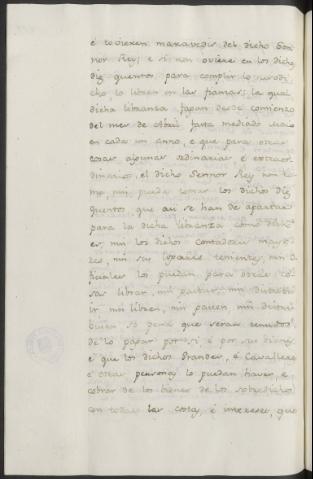 é codieren maravedis del dicho Sen
nor Rey; e si non oviere en los dichos
diz quentos para complir lo susodi
cho lo libren en las frannas; la qual
dicha libranza fagan desde comienzo
del mes de Abril fasta mediado Maio
en cada un anno, e que para otras
cosas algunas ordinarias é extraor
dinarias, el dicho Sennor Rey non to
me, nin pueda tomar los dichos diz
quentos que asi se han de apartar
para la dicha libranza como dicho
es, nin los dichos Contadores mayo
res, nin sus logares tenientes, nin o
ficiales los puedan para otras co
sas librar, nin partir, nin distribu
ir, nin libren, nin parten, nin distri
buien, so pena que seran tenudos
de lo pagar por si é por sus bienes
e que los dichos Grandes, é Cavalleros
e otras personas lo puedan haver, e
cobrar de los bienes de los sobredichos
con todas las costas, é intereses, que